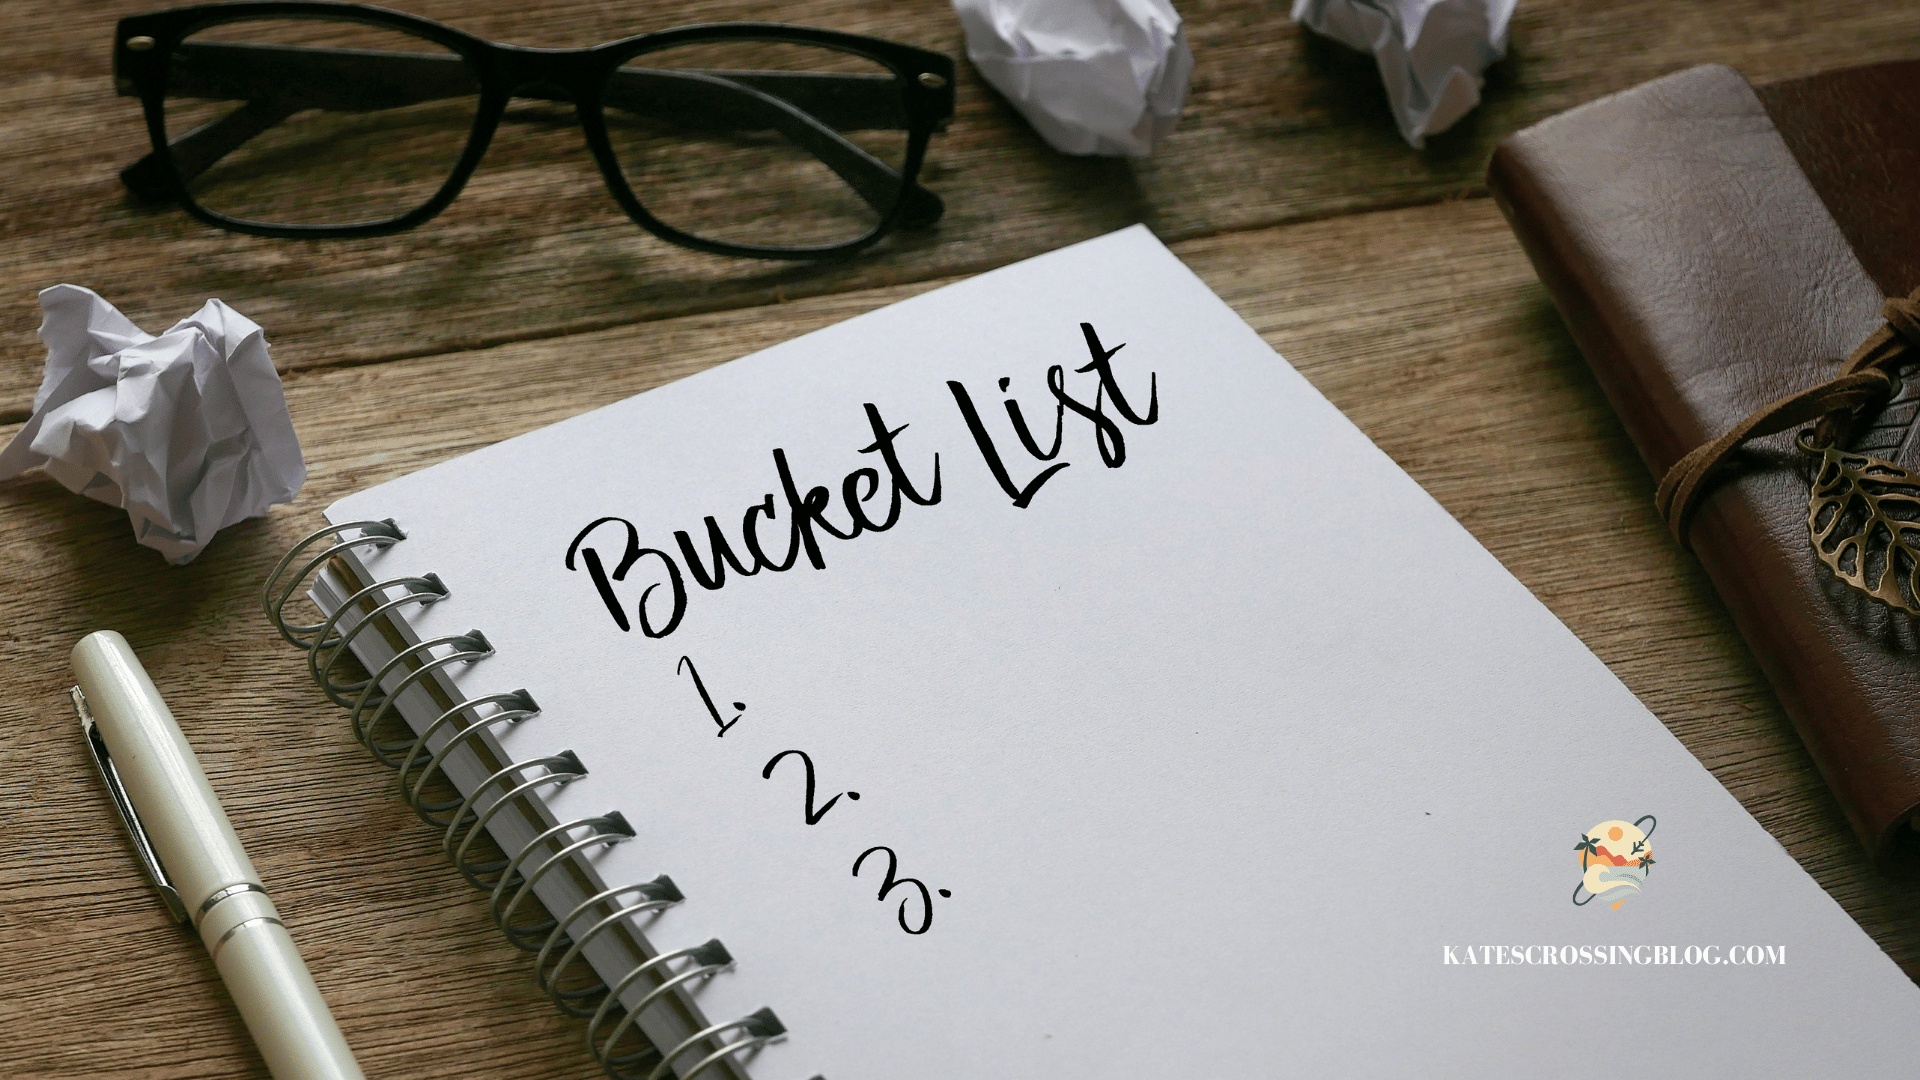 Bucket List
1.
2.
3.
KATESCROSSINGBLOG.COM